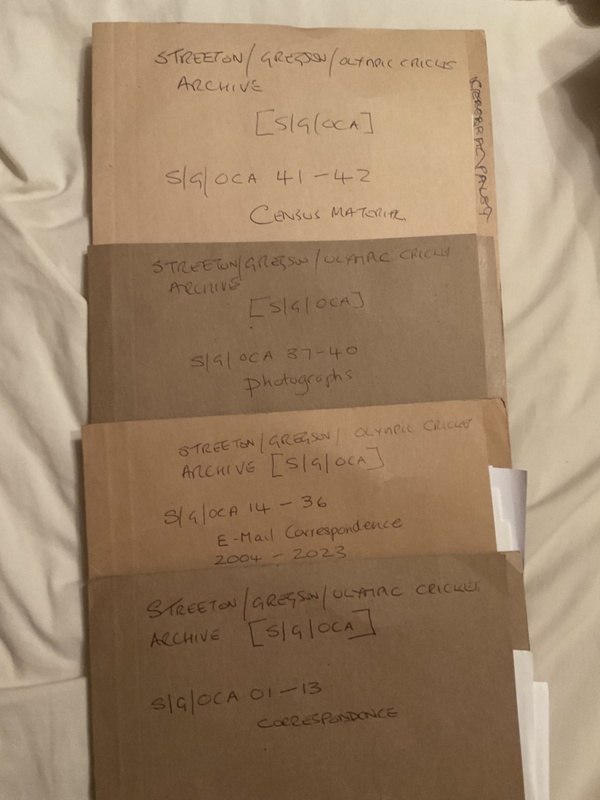 STREETON/GREGSON/OLYMPIC CRICKET
ARCHIVE
[S/G/OCA]
S/G/OCA 41-42
CENSUS MATERIAL
STREETON/GREGSON/OLYMPIC CRICKET
ARCHIVE
[S/G/OCA]
S/G/OCA 37-40
Photographs
STREETON/GREGSON/OLYMPIC CRICKET
ARCHIVE [S/G/OCA]
S/G/OCA 14-36
E-Mail Correspondence
2004-2023
STREETON/GREGSON/OLYMPIC CRICKET
ARCHIVE [S/G/OCA]
S/G/OCA 01-13
CORRESPONDENCE